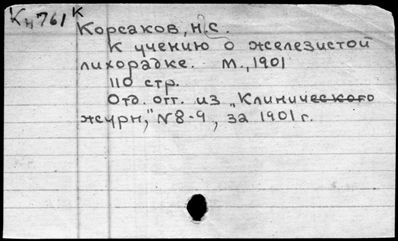 Кн761 К
Корсаков, Н.С.
К учению о железистой
лихорадке. М., 1901
110 стр.
Отд. отт. из „Клинического
журн," №8-9, за 1901 г.